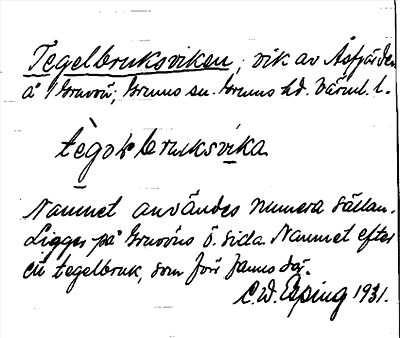 Tegelbruksviken, vik av Åsfjärden
å Gruvön, Grums sn. Grums hd. Värml. l.
tègəlbruksvika
Namnet användes numera sällan.
Ligger på Gruvöns ö. sida. Namnet efter
ett tegelbruk, som förr fanns där.
C.W. Esping 1931.